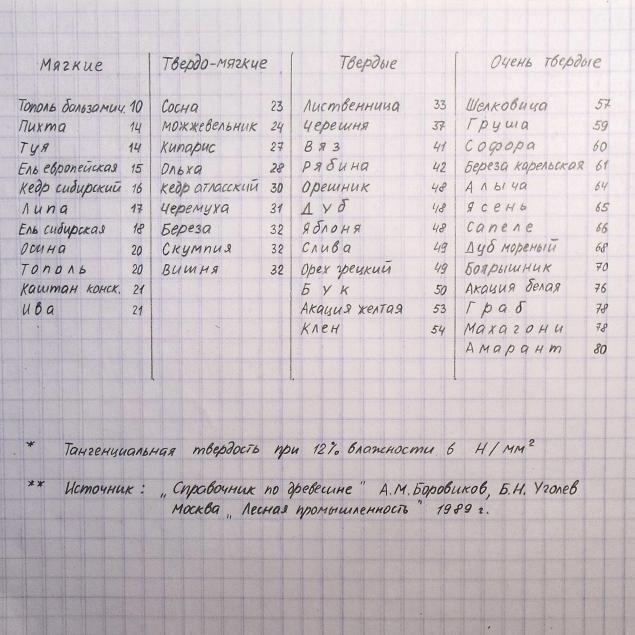 Мягкие
Тополь бальзамич. 10
Пихта 14
Туя 14
Ель европейская 15
Кедр сибирский 16
Липа 17
Ель сибирская 18
Осина 20
Тополь 20
Каштан конск. 21
Ива 21
Твердо-мягкие
Сосна 23
Можжевельник 24
Кипарис 27
Ольха 28
Кедр атласский 30
Черемуха 31
Береза 32
Скумпия 32
Вишня 32
Твердые
Лиственница 33
Черешня 37
Вяз 41
Рябина 42
Орешник 48
Дуб 48
Яблоня 48
Слива 49
Орех грецкий 49
Бук 50
Акация желтая 53
Клен 54
Очень твердые
Шелковица 57
Груша 59
Софора 60
Береза карельская 61
Алыча 64
Ясень 65
Сапеле 66
Дуб мореный 68
Боярышник 70
Акация белая 76
Граб 78
Махагони 78
Амарант 80
* Тангенциальная твердость при 12% влажности в Н/мм²
** Источник: „Справочник по древесине" А.М.Боровиков, Б.Н.Уголев
Москва „Лесная промышленность" 1989 г.